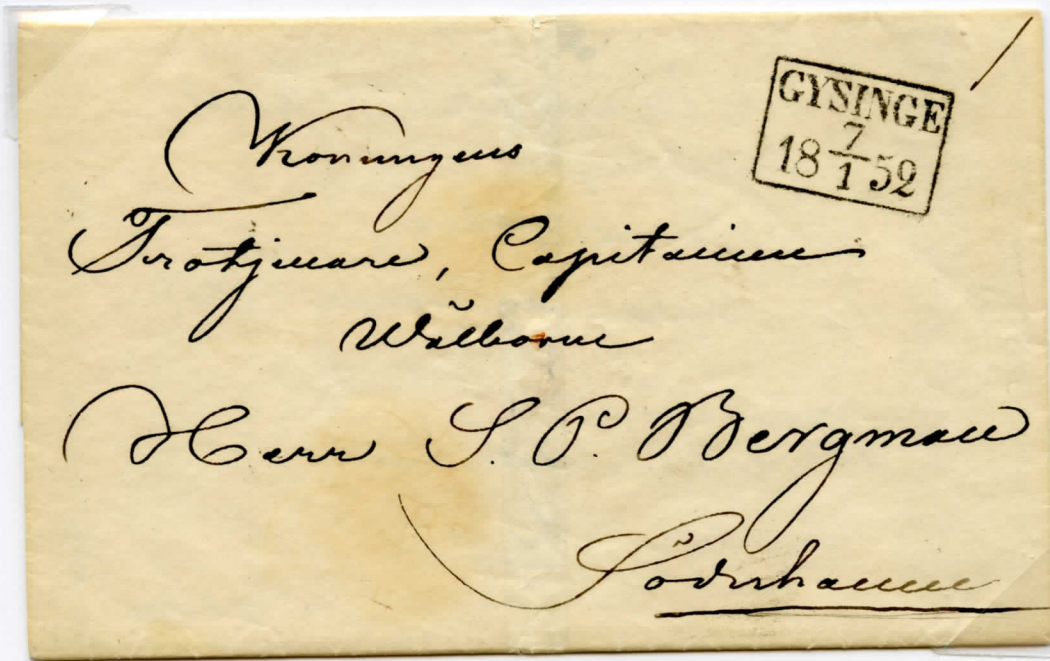 GYSINGE
7
18 1 52
Konungens
Trotjenare, Capitainen
Wälborne
Herr S. P. Bergman
Söderhamn